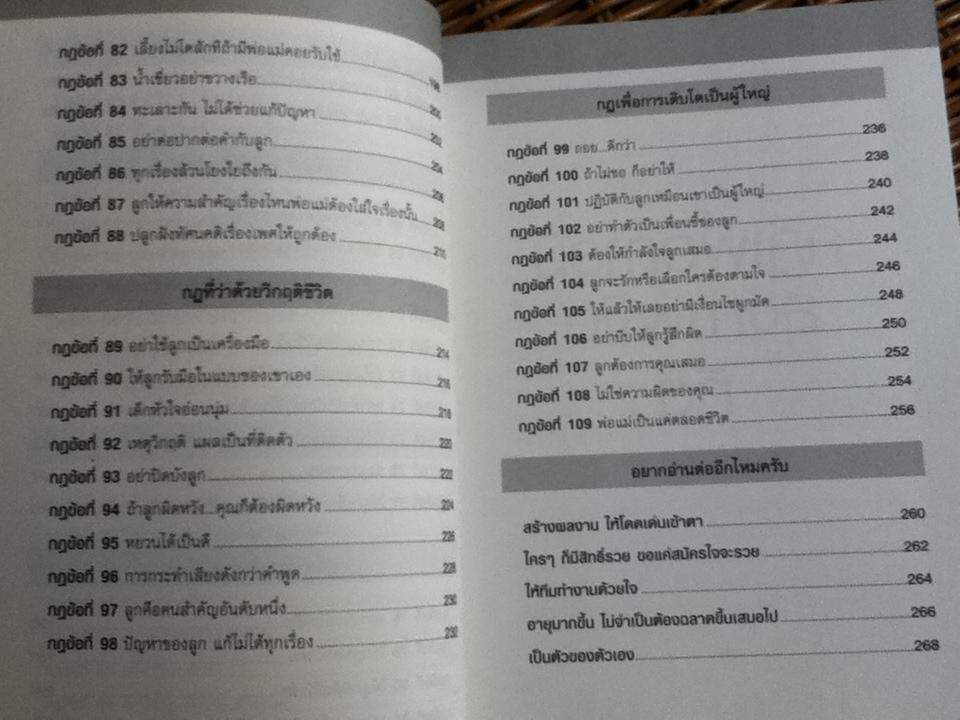 กฎข้อที่ 82 เลี้ยงไม่โตสักทีถ้ามีพ่อแม่คอยรับใช้ 198
กฎข้อที่ 83 น้ำเชี่ยวอย่าขวางเรือ 200
กฎข้อที่ 84 ทะเลาะกัน ไม่ได้ช่วยแก้ปัญหา 202
กฎข้อที่ 85 อย่าต่อปากต่อคำกับลูก 204
กฎข้อที่ 86 ทุกเรื่องล้วนโยงใยถึงกัน 206
กฎข้อที่ 87 ลูกให้ความสำคัญเรื่องไหนพ่อแม่ต้องใส่ใจเรื่องนั้น 208
กฎข้อที่ 88 ปลูกฝังทัศนคติเรื่องเพศให้ถูกต้อง 210
กฎที่ว่าด้วยวิกฤติชีวิต
กฎข้อที่ 89 อย่าใช้ลูกเป็นเครื่องมือ 214
กฎข้อที่ 90 ให้ลูกรับมือในแบบของเขาเอง 216
กฎข้อที่ 91 เด็กหัวใจอ่อนนุ่ม 218
กฎข้อที่ 92 เหตุวิกฤติ แผลเป็นที่ติดตัว 220
กฎข้อที่ 93 อย่าปิดบังลูก 222
กฎข้อที่ 94 ถ้าลูกผิดหวัง...คุณก็ต้องผิดหวัง 224
กฎข้อที่ 95 หยวนได้เป็นดี 226
กฎข้อที่ 96 การกระทำเสียงดังกว่าคำพูด 228
กฎข้อที่ 97 ลูกคือคนสำคัญอันดับหนึ่ง 230
กฎข้อที่ 98 ปัญหาของลูก แก้ไม่ได้ทุกเรื่อง 232
กฎเพื่อการเติบโตเป็นผู้ใหญ่
กฎข้อที่ 99 ถอย...ดีกว่า 236
กฎข้อที่ 100 ถ้าไม่ขอ ก็อย่าให้ 238
กฎข้อที่ 101 ปฏิบัติกับลูกเหมือนเขาเป็นผู้ใหญ่ 240
กฎข้อที่ 102 อย่าทำตัวเป็นเพื่อนซี้ของลูก 242
กฎข้อที่ 103 ต้องให้กำลังใจลูกเสมอ 244
กฎข้อที่ 104 ลูกจะรักหรือเลือกใครต้องตามใจ 246
กฎข้อที่ 105 ให้แล้วให้เลยอย่ามีเงื่อนไขผูกมัด 248
กฎข้อที่ 106 อย่าบีบให้ลูกรู้สึกผิด 250
กฎข้อที่ 107 ลูกต้องการคุณเสมอ 252
กฎข้อที่ 108 ไม่ใช่ความผิดของคุณ 254
กฎข้อที่ 109 พ่อแม่เป็นแค่ตลอดชีวิต 256
อยากอ่านต่ออีกไหมครับ
สร้างผลงาน ให้โดดเด่นเข้าตา 260
ใครๆ ก็มีสิทธิ์รวย ขอแค่สมัครใจจะรวย 262
ให้ทีมทำงานด้วยใจ 264
อายุมากขึ้น ไม่จำเป็นต้องฉลาดขึ้นเสมอไป 266
เป็นตัวของตัวเอง 268